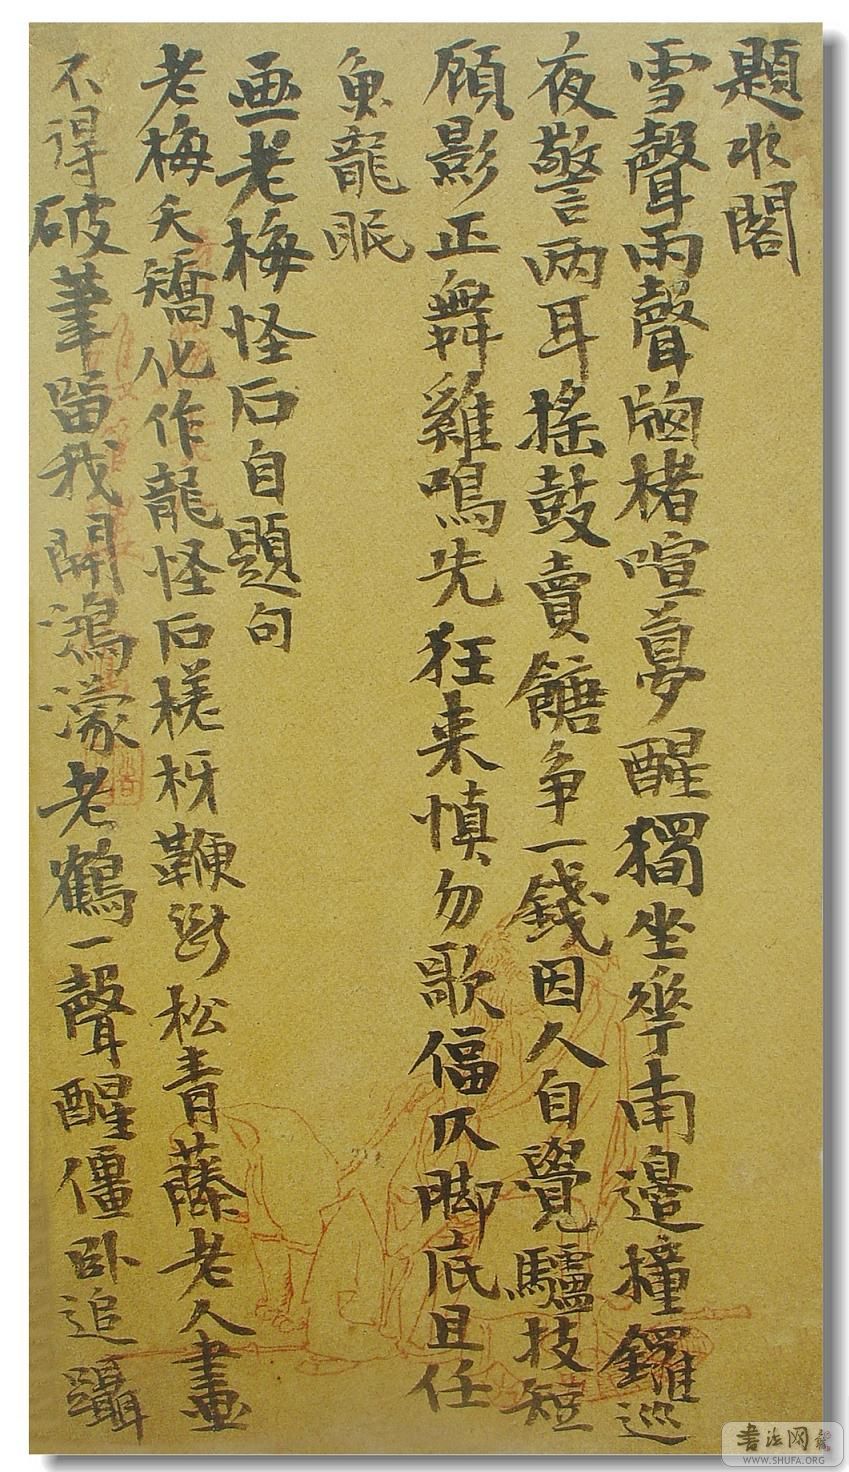 題水閣
雪聲雨聲牕楮喧夢醒獨坐華南邊撞鑼巡
夜警兩耳搖鼓賣餹爭一錢因人自覺驢技短
顧影正舞雞鳴先狂來慎勿歌偪仄脚底且任
魚龍眠
画老梅怪石自題句
老梅夭矯化作龍怪石槎枒鞭斷松青藤老人畫
不得破筆留我開鴻濛老鶴一聲醒僵卧追躡
書法网
WWW.SHUFA.ORG